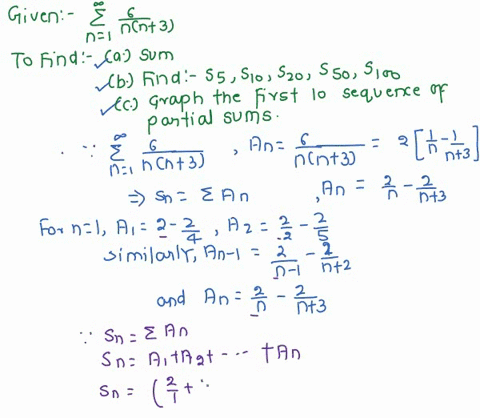 Given:- ∞ Σ n=1 6/n(n+3)
To Find:- (a.) sum
(b.) Find:- S5, S10, S20, S50, S100
(c.) Graph the first 10 sequence of
partial sums.
∵ ∞ Σ n=1 6/n(n+3) , An = 6/n(n+3) = 2[1/n - 1/n+3]
⇒ Sn = Σ An , An = 2/n - 2/n+3
For n=1, A1 = 2 - 2/4 , A2 = 2/2 - 2/5
similarly, An-1 = 2/n-1 - 2/n+2
and An = 2/n - 2/n+3
∵ Sn = Σ An
Sn = A1 + A2 + - - - - + An
Sn = (2/1 +